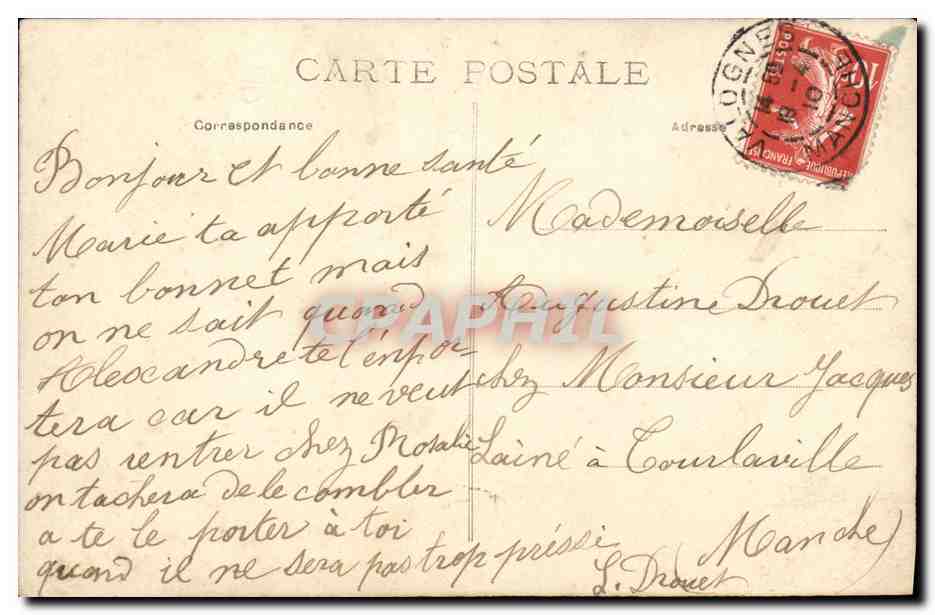 CARTE POSTALE
Correspondance
Adresse
VALOGNES
MANCHE
14 50
18 - 4
10
10
POSTES
REPUBLIQUE FRANCAISE
Bonjour et bonne santé
Marie ta apporté
ton bonnet mais
on ne sait quand
Alexandre te l'énpor-
tera car il ne veut
pas rentrer chez Rosalie
on tachera de le combler
a te le porter à toi
quand il ne sera pas trop préssé
L. Drouet
Mademoiselle
Augustine Drouet
chez Monsieur Jacques
Lainé à Tourlaville
(Manche)
CPAPHIL